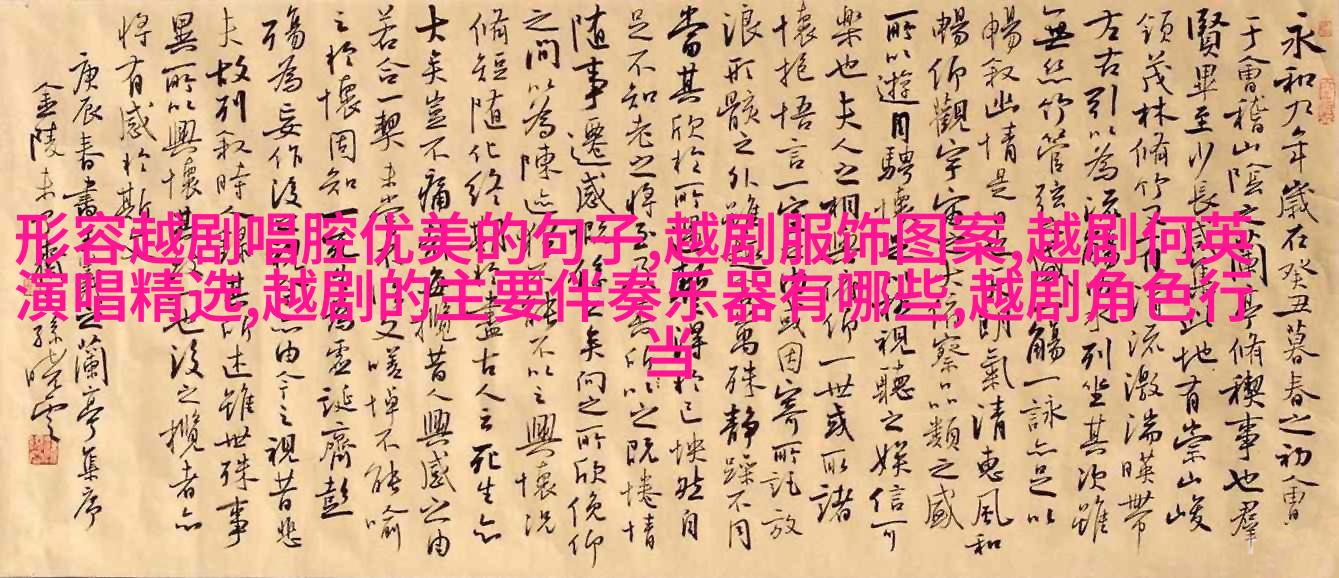 形容越剧唱腔优美的句子,越剧服饰图案,越剧何英
演唱精选,越剧的主要伴奏乐器有哪些,越剧角色行
当
永和九年歲在癸丑暮春之初會
于會稽山陰之蘭亭脩禊事也羣
賢畢至少長咸集此地有崇山峻
領茂林脩竹又有清流激湍暎帶
左右引以為流觴曲水列坐其次雖
無絲竹管弦之盛一觴一詠亦足以
暢敘幽情是日也天朗氣清惠風和
暢仰觀宇宙之大俯察品類之盛
所以遊目騁懷足以極視聽之娛信可
樂也夫人之相與俯仰一世或取諸
懷抱悟言一室之內或因寄所託放
浪形骸之外雖趣舍萬殊靜躁不同
當其欣於所遇暫得於己怏然自
足不知老之將至及其所之既惓情
隨事遷感慨係之矣向之所欣俛仰
之間以為陳迹猶不能不以之興懷況
脩短隨化終期於盡古人云死生亦
大矣豈不痛哉每攬昔人興感之由
若合一契未嘗不臨文嗟悼不能喻
之於懷固知一死生為虛誕齊彭
殤為妄作後之視今亦由今之視昔悲
夫故列敘時人錄其所述雖世殊事
異所以興懷其致一也後之攬者亦
將有感於斯文
庚辰春書蘭亭集序
金陵孫曉雲